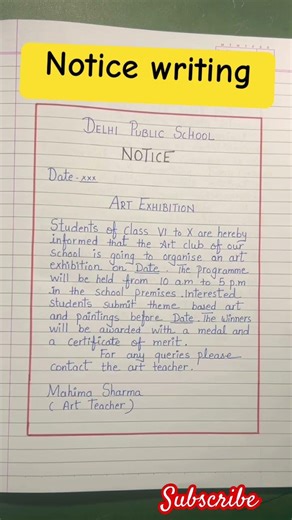 Notice writing
DELHI PUBLIC SCHOOL
NOTICE
Date - xxx
ART EXHIBITION
Students of class VI to X are hereby
informed that the Art club of our
school is going to organise an art
exhibition on Date. The programme
will be held from 10 a.m to 5 p.m
in the school premises. Interested
students submit theme based art
and paintings before Date. The winners
will be awarded with a medal and
a certificate of merit.
For any queries please
contact the art teacher.
Mahima Sharma
(Art Teacher)
Subscribe